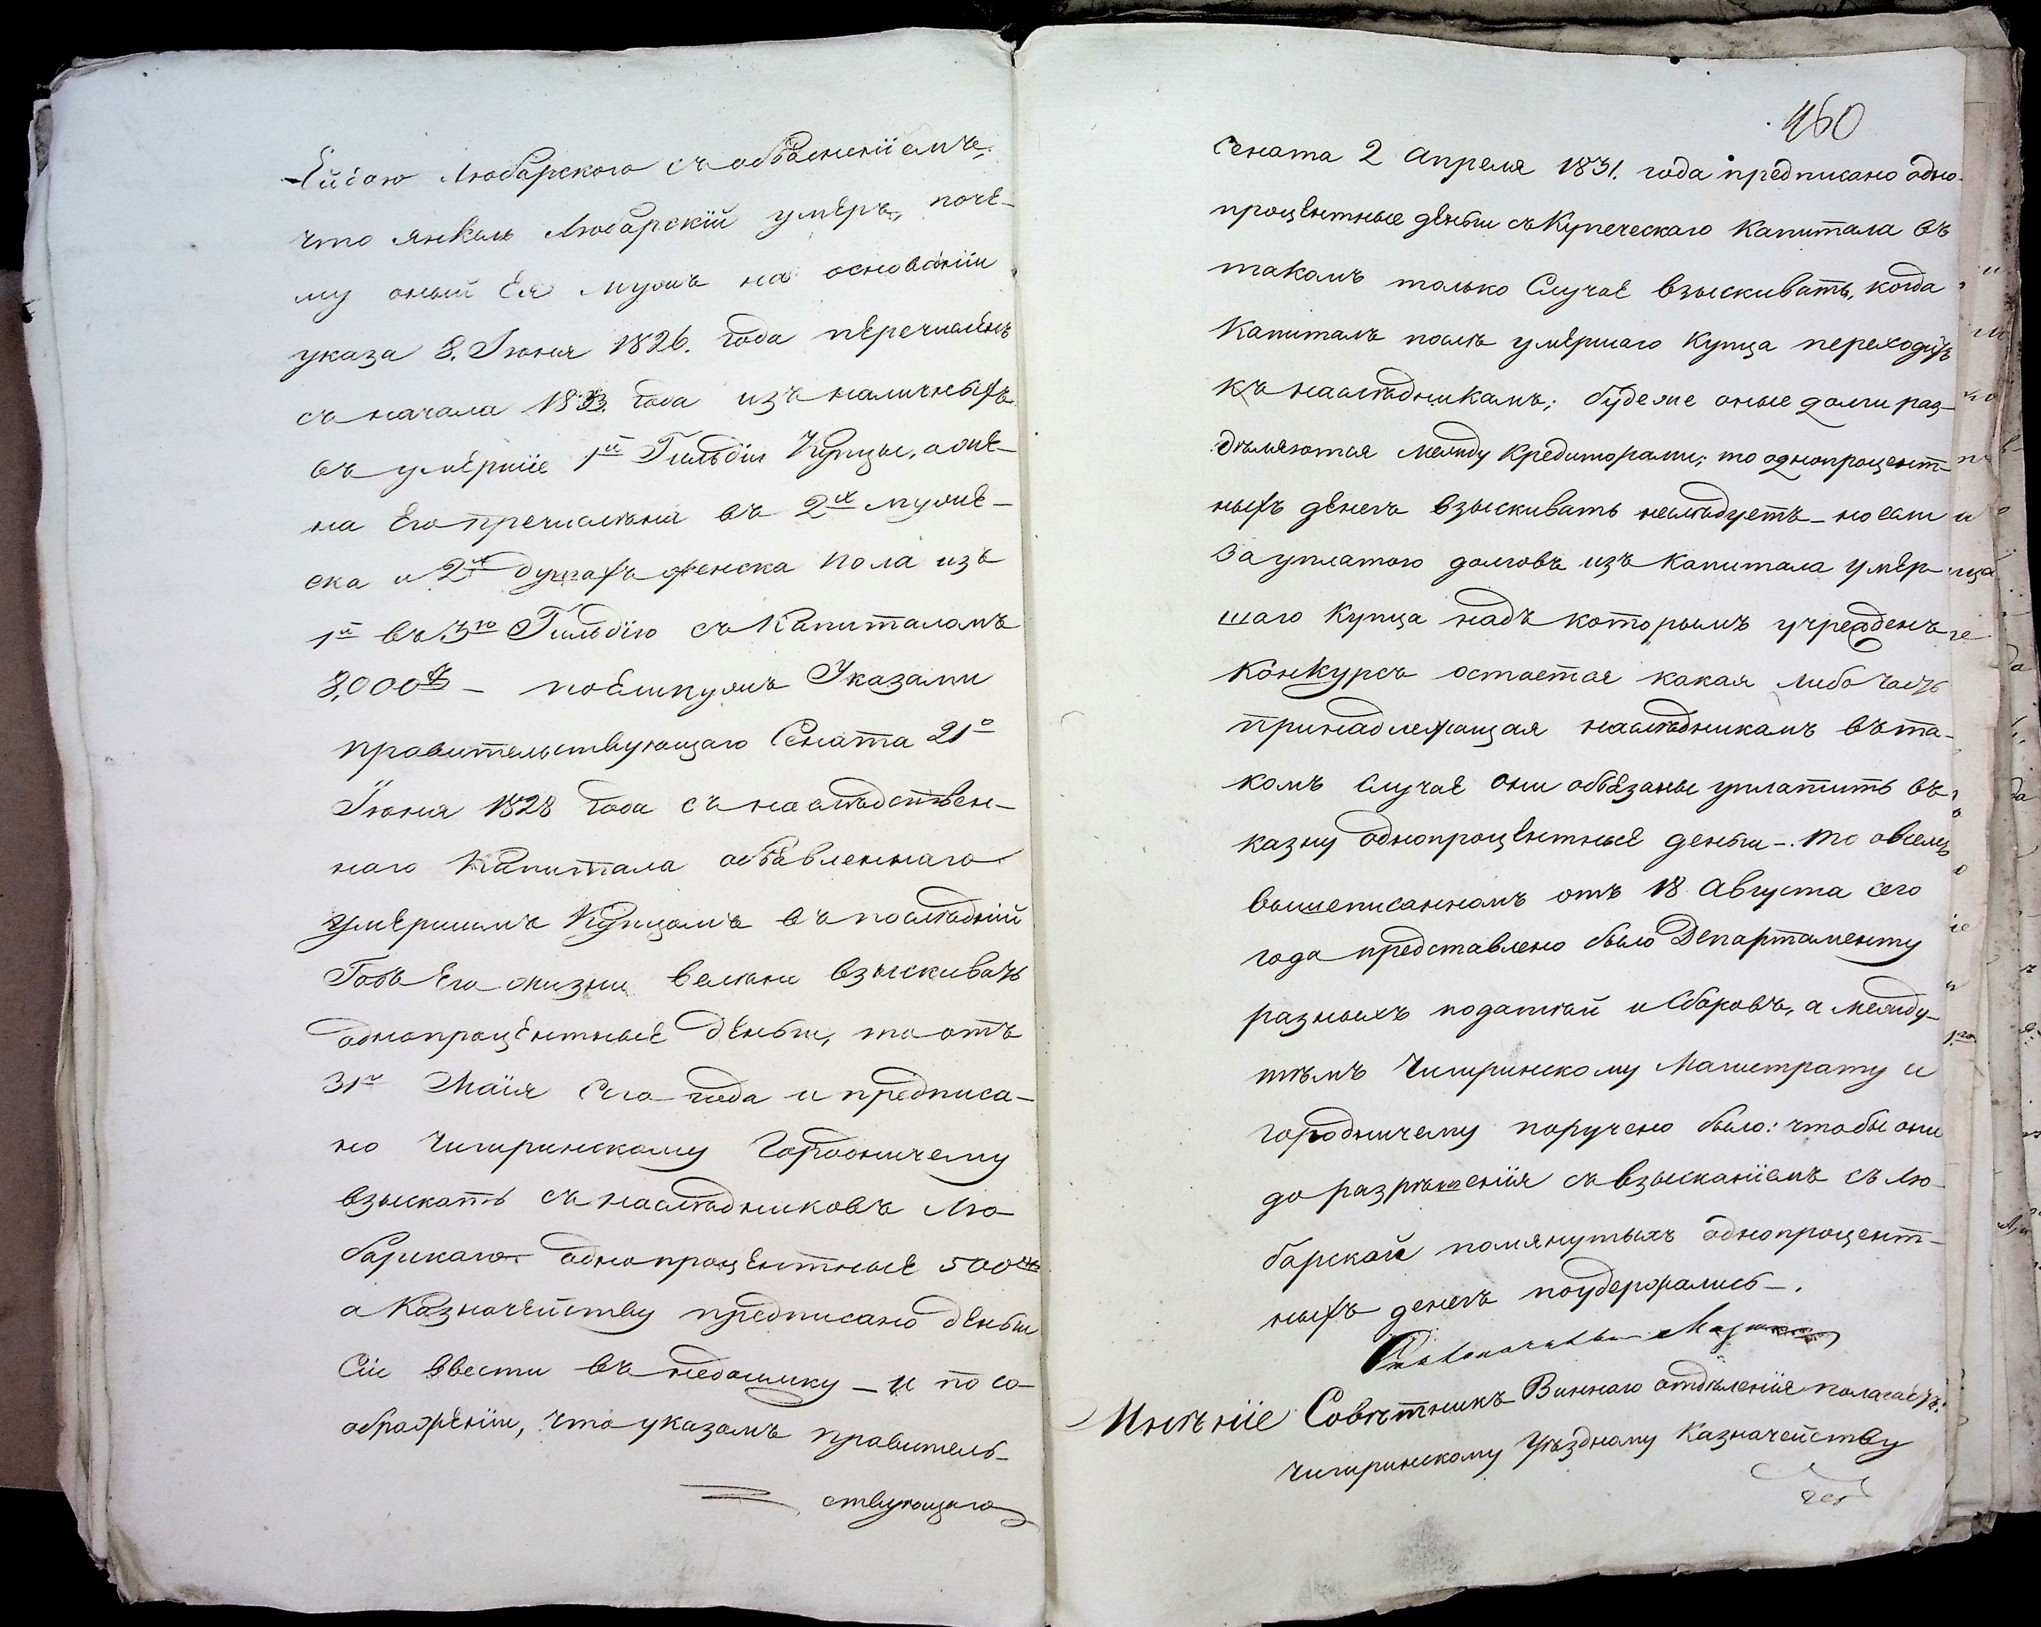 Ейсою Любарскою съ объясненіемъ,
что Янкель Любарскій умеръ, поче-
му оный Ея мужъ на основаніи
указа 8. Іюня 1826. года перечисленъ
съ начала 1833. года изъ наличныхъ
въ умершіе 1й Гильдіи Купцы, а же-
на Его пречислена въ 2хъ муже-
ска и 2хъ душахъ женска пола изъ
1й въ 3ю Гильдію съ Капиталомъ
8,000 р – поЕлику жъ Указами
правительствующаго Сената 21о
Іюня 1828 года съ наслѣдствен-
наго Капитала объявленнаго
умершимъ Купцомъ въ послѣдній
Годъ Его жизни велѣно взыскивать
однопроцентные деньги, то отъ
31го Маія сего года и предписа-
но Чигиринскому Городничему
взыскать съ наслѣдниковъ Лю-
барскаго однопроцентные 500
а Казначейству предписано деньги
Сіи ввести въ недоимку – и по со-
ображеніи, что указомъ правитель-
ствующаго
460
Сената 2 Апреля 1831. года предписано одно-
процентные деньги съ Купеческаго Капитала въ
такомъ только Случае взыскивать, когда
Капиталъ послѣ умершаго Купца переходитъ
къ наслѣдникамъ; будеже оные долги раз-
дѣляются между Кредиторами; то однопроцент-
ныхъ денегъ взыскивать неслѣдуетъ – но если
за уплатою долговъ изъ Капитала умер-
шаго Купца надъ которымъ учрежденъ
Конкурсъ остается какая либо часть
принадлежащая наслѣдникамъ въ та-
комъ Случае они обязаны уплатить въ
казну однопроцентные деньги –. то о всемъ
вышеписанномъ отъ 18 Августа сего
года представлено было Департаменту
разныхъ податей и Сборовъ, а между-
тѣмъ Чигиринскому Магистрату и
городничему поручено было: чтобы они
до разрѣшенія съ взысканіемъ съ Лю-
барской помянутыхъ однопроцент-
ныхъ денегъ поудержались –.
Мнѣніе Совѣтникъ Виннаго отдѣленія полагаетъ:
Чигиринскому Уѣздному Казначейству